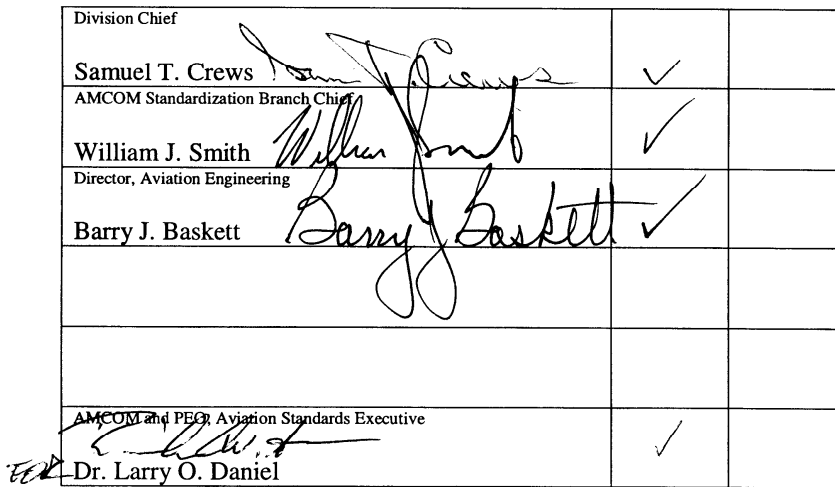 Division Chief
Samuel T. Crews Sam T. Crews ✓
AMCOM Standardization Branch Chief
William J. Smith William J Smith ✓
Director, Aviation Engineering
Barry J. Baskett Barry J Baskett ✓
AMCOM and PEO, Aviation Standards Executive
✓
FOR Dr. Larry O. Daniel